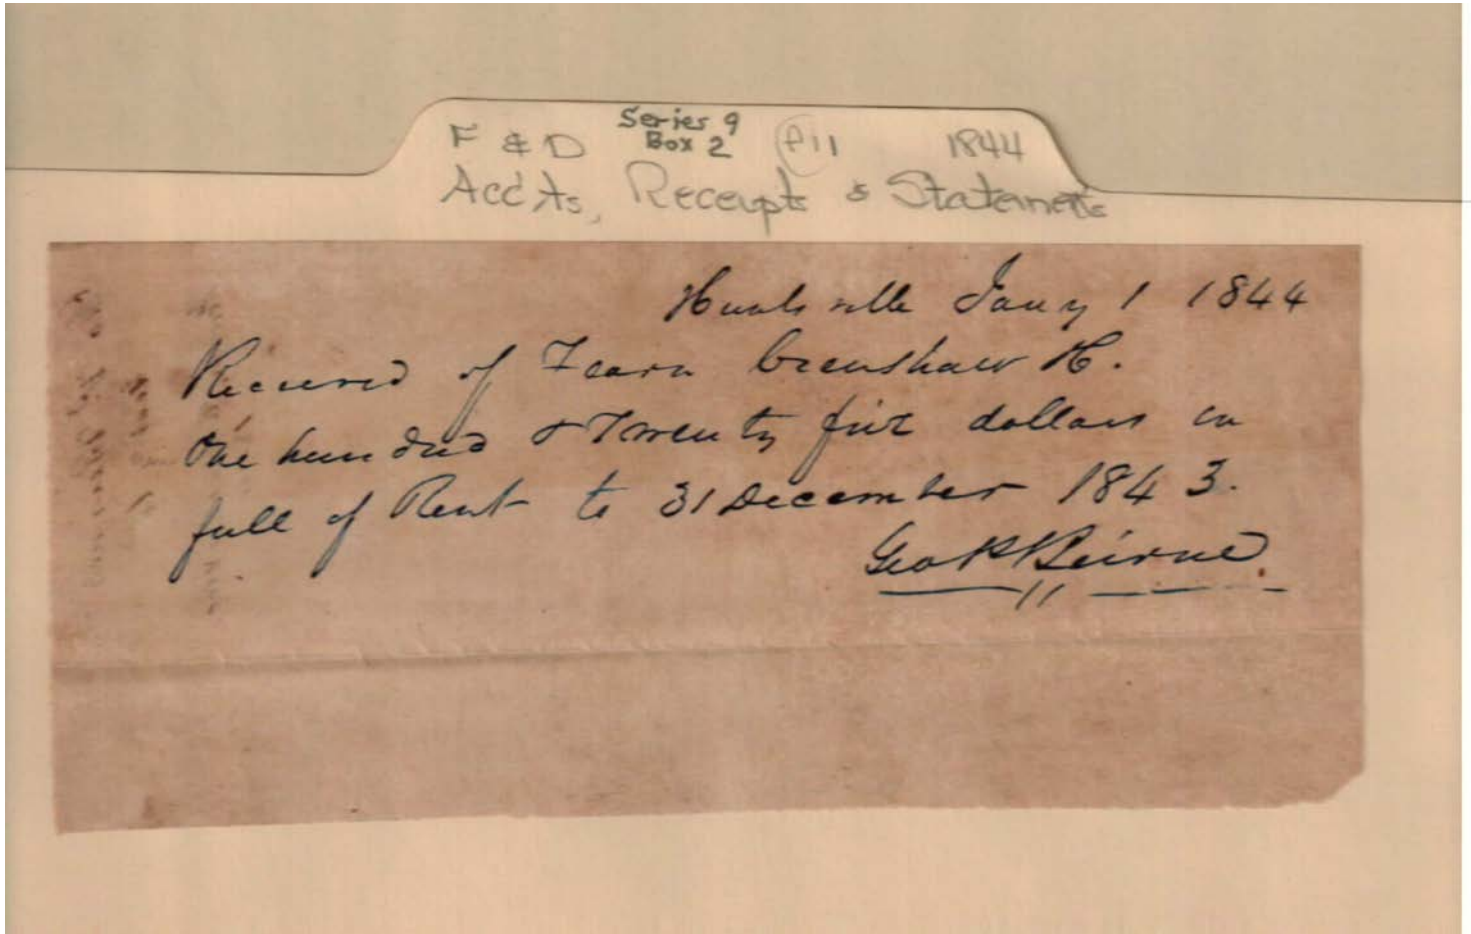 F & D Series 9 Box 2 P11 1844
Acc'ts, Receipts & Statements
Huntsville Jany 1 1844
Received of Fearn Crenshaw H.
One hundred & Twenty five dollars in
full of Rent to 31 December 1843.
Geo P Beirne